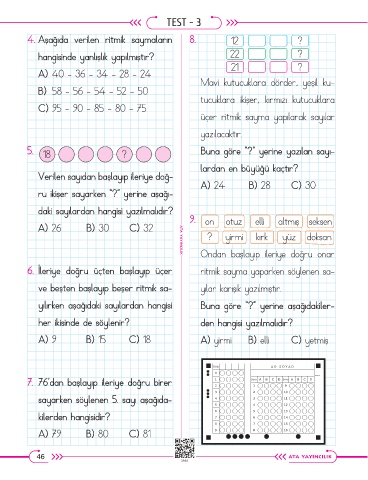 TEST - 3
4. Aşağıda verilen ritmik saymaların
hangisinde yanlışlık yapılmıştır?
A) 40 - 36 - 34 - 28 - 24
B) 58 - 56 - 54 - 52 - 50
C) 95 - 90 - 85 - 80 - 75
5.
18 ?
Verilen sayıdan başlayıp ileriye doğ-
ru ikişer sayarken "?" yerine aşağı-
daki sayılardan hangisi yazılmalıdır?
A) 26 B) 30 C) 32
6. İleriye doğru üçten başlayıp üçer
ve beşten başlayıp beşer ritmik sa-
yılırken aşağıdaki sayılardan hangisi
her ikisinde de söylenir?
A) 9 B) 15 C) 18
7. 76'dan başlayıp ileriye doğru birer
sayarken söylenen 5. sayı aşağıda-
kilerden hangisidir?
A) 79 B) 80 C) 81
8.
12 ?
22 ?
21 ?
Mavi kutucuklara dörder, yeşil ku-
tucuklara ikişer, kırmızı kutucuklara
üçer ritmik sayma yapılarak sayılar
yazılacaktır.
Buna göre "?" yerine yazılan sayı-
lardan en büyüğü kaçtır?
A) 24 B) 28 C) 30
9.
on otuz elli altmış seksen
? yirmi kırk yüz doksan
Ondan başlayıp ileriye doğru onar
ritmik sayma yaparken söylenen sa-
yılar karışık yazılmıştır.
Buna göre "?" yerine aşağıdakiler-
den hangisi yazılmalıdır?
A) yirmi B) elli C) yetmiş
AD SOYAD
46
ATA YAYINCILIK